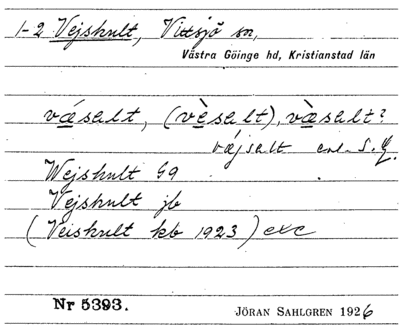 1-2 Vejshult, Vittsjö sn,
Västra Göinge hd, Kristianstad län
vǽsalt, (vèsalt), væ̀salt?
vǽjsalt enl. S. Z.
Wejshult 59
Vejshult jb
(Veishult kb 1923) exc
Nr 5393.
JÖRAN SAHLGREN 1926